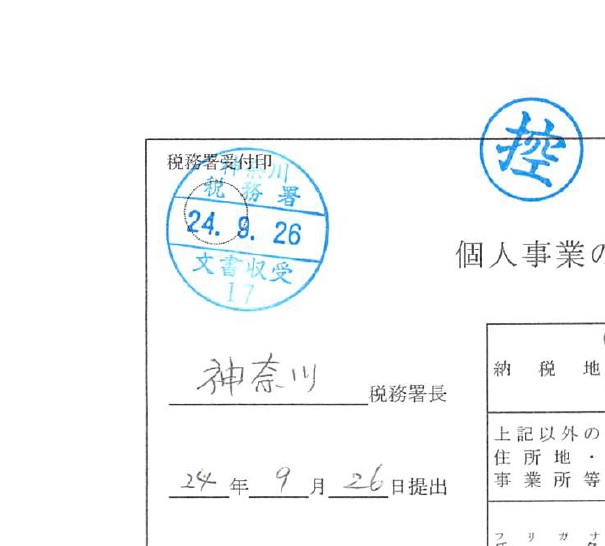 控
税務署受付印
神奈川
税務署
24. 9. 26
文書収受
17
個人事業の
神奈川 税務署長
24 年 9 月 26 日提出
納税地
上記以外の
住所地・
事業所等
フリガナ